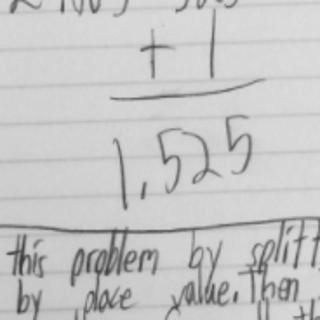 + 1
1,525
this problem by splitt
by place value. Then